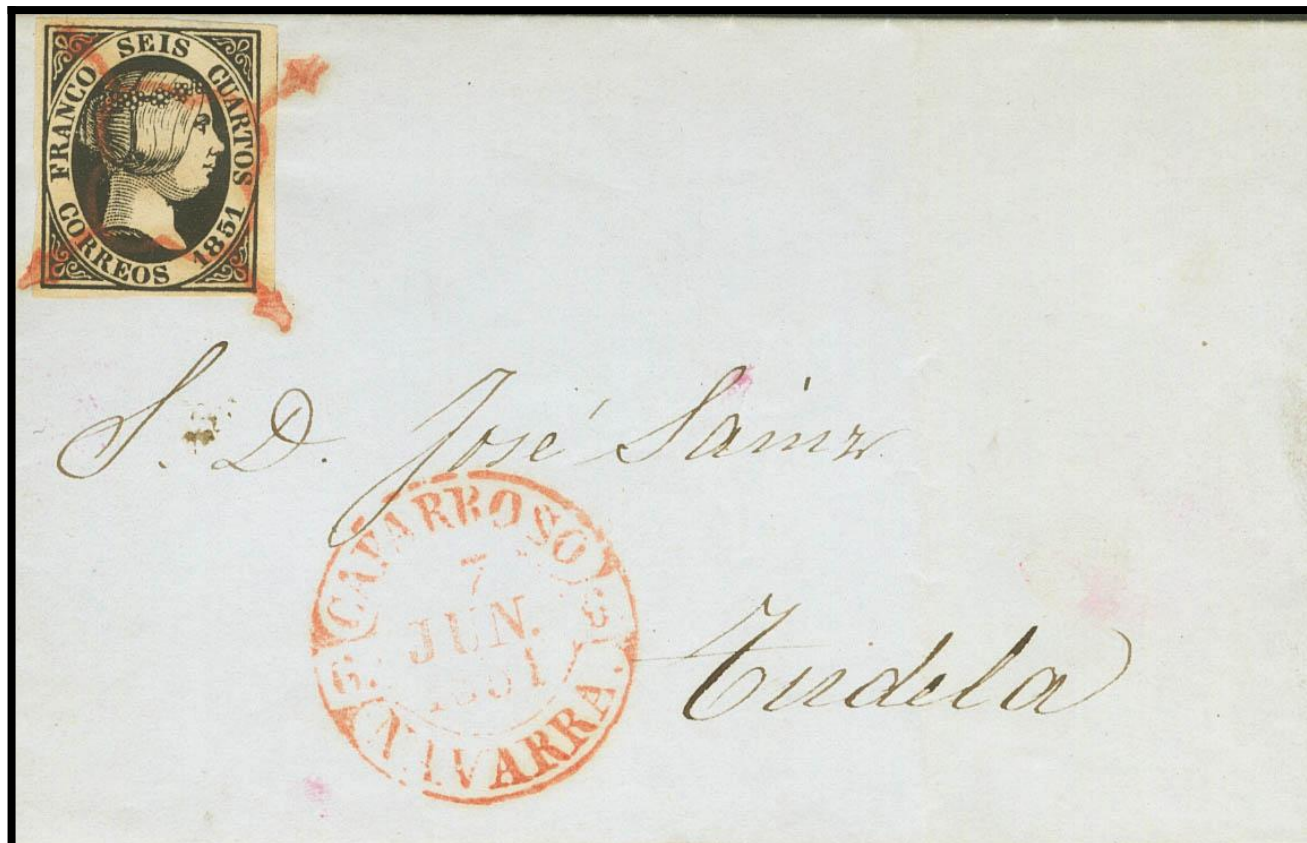 FRANCO SEIS CUARTOS
CORREOS 1851
S. D. José Sainz
CAPARROSO
7
JUN.
1851
NAVARRA.
Tudela